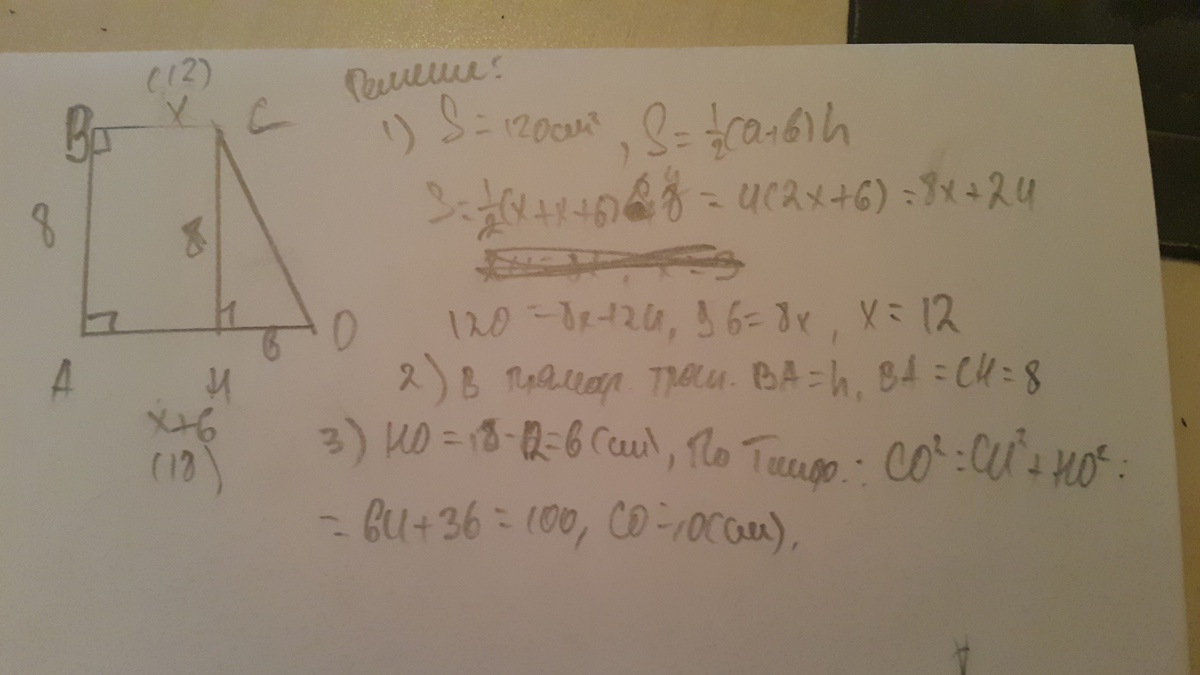 (12)
x
B
C
8
8
6
A
H
O
x+6
(18)
Решение:
1) S = 120 см², S = ½(a+b)h
S = ½(x+x+6) 8 = 4(2x+6) = 8x+24
120 = 8x+24, 96 = 8x, x = 12
2) В прямоуг. трап. BA = h, BA = CH = 8
3) HO = 18-12 = 6 (см), По Т. Пифо.: CO² = CH² + HO² =
= 64+36 = 100, CO = 10 (см).